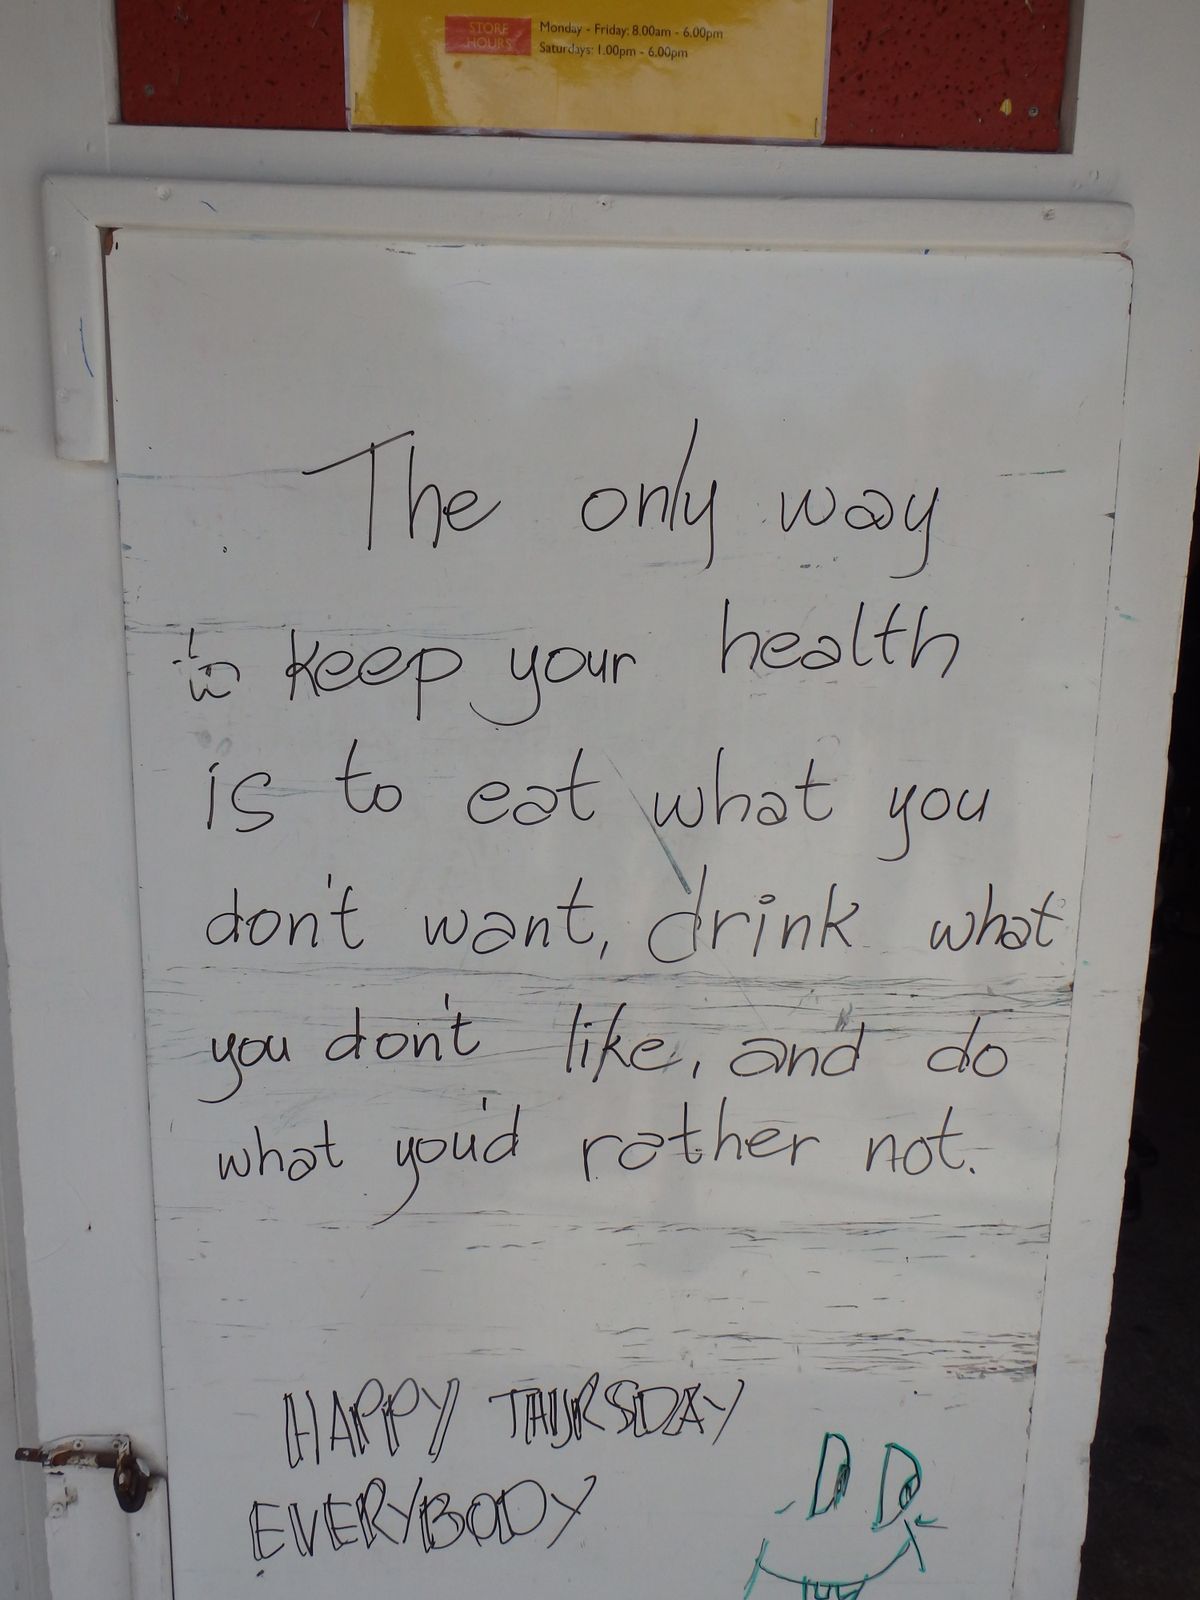 STORE HOURS
Monday - Friday: 8.00am - 6.00pm
Saturdays: 1.00pm - 6.00pm
The only way
to keep your health
is to eat what you
don't want, drink what
you don't like, and do
what you'd rather not.
HAPPY THURSDAY
EVERYBODY